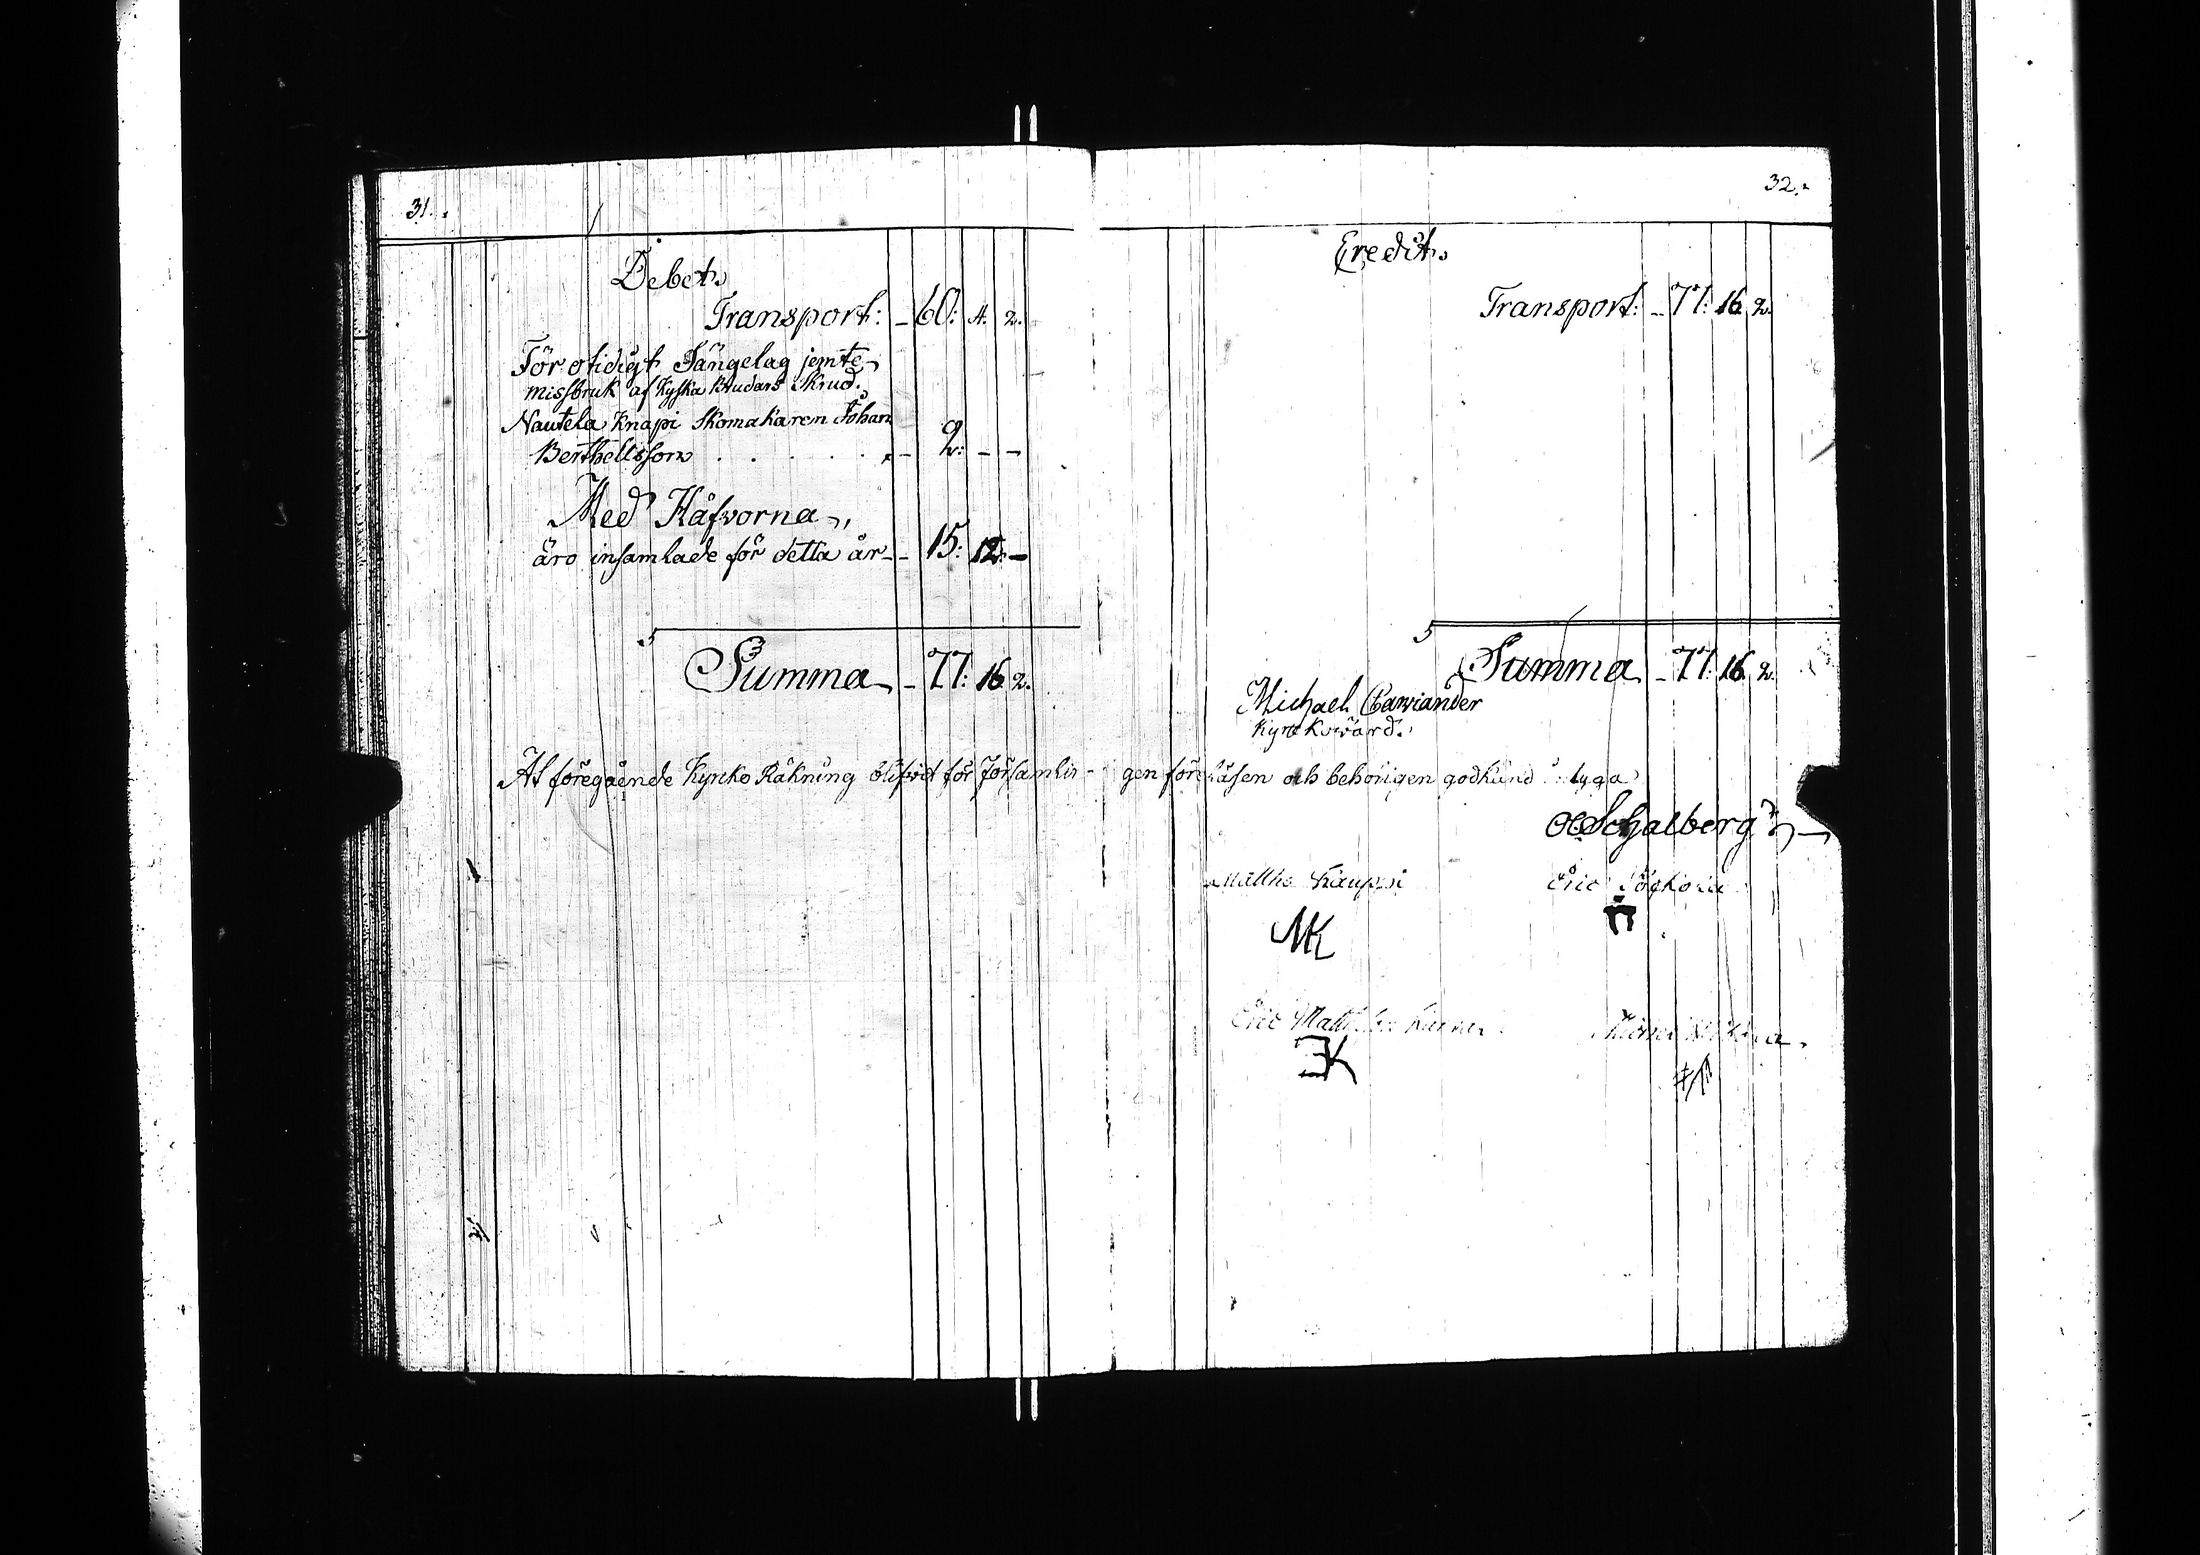 31.
Debet.
Transport: – 60: 4. 2.
För otidigt Sängelag jemte
missbruk af Kyska Brudars Skrud.
Nautela Knapi Skomakaren Johan
Berthellsson . . . . . . – 2: – –
Med Håfvorna,
äro insamlade för detta år – – 15: 12: –
Summa – 77: 16. 2.
32.
Credit.
Transport: – 77: 16. 2.
Summa – 77: 16. 2.
Michael
Kyrckowärd.
At föregående Kyrcko Räkning blifvit för Församlin- gen föreläsen och behörigen godkänd
Schalberg
Matths Kauppi Eric
MK
Eric
EK